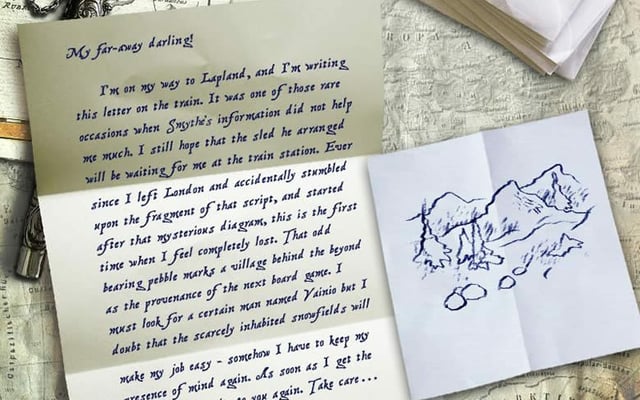 My far-away darling!
I'm on my way to Lapland, and I'm writing
this letter on the train. It was one of those rare
occasions when Smythe's information did not help
me much. I still hope that the sled he arranged
will be waiting for me at the train station. Ever
since I left London and accidentally stumbled
upon the fragment of that script, and started
after that mysterious diagram, this is the first
time when I feel completely lost. That odd
bearing pebble marks a village behind the beyond
as the provenance of the next board game. I
must look for a certain man named Vainio but I
doubt that the scarcely inhabited snowfields will
make my job easy - somehow I have to keep my
presence of mind again. As soon as I get the
to you again. Take care...